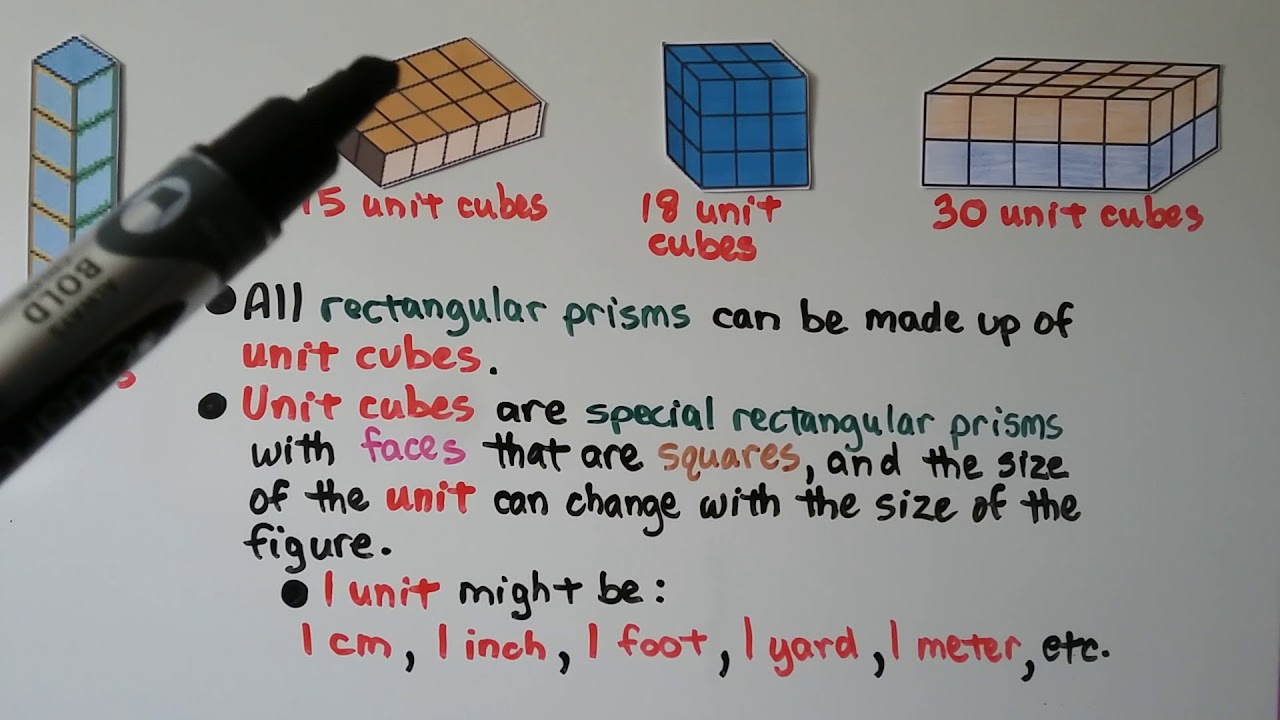 15 unit cubes
18 unit
cubes
30 unit cubes
BOLD
All rectangular prisms can be made up of
unit cubes.
Unit cubes are special rectangular prisms
with faces that are squares, and the size
of the unit can change with the size of the
figure.
1 unit might be:
1 cm, 1 inch, 1 foot, 1 yard, 1 meter, etc.